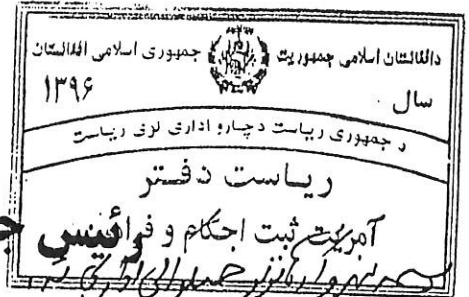 دافغانستان اسلامی جمهوریت جمهوری اسلامی افغانستان
سال ۱۳۹۶
د جمهوری ریاست د چارو اداری لوی ریاست
ریاست دفتر
آمریت ثبت احکام و فرامین
رئیس ج